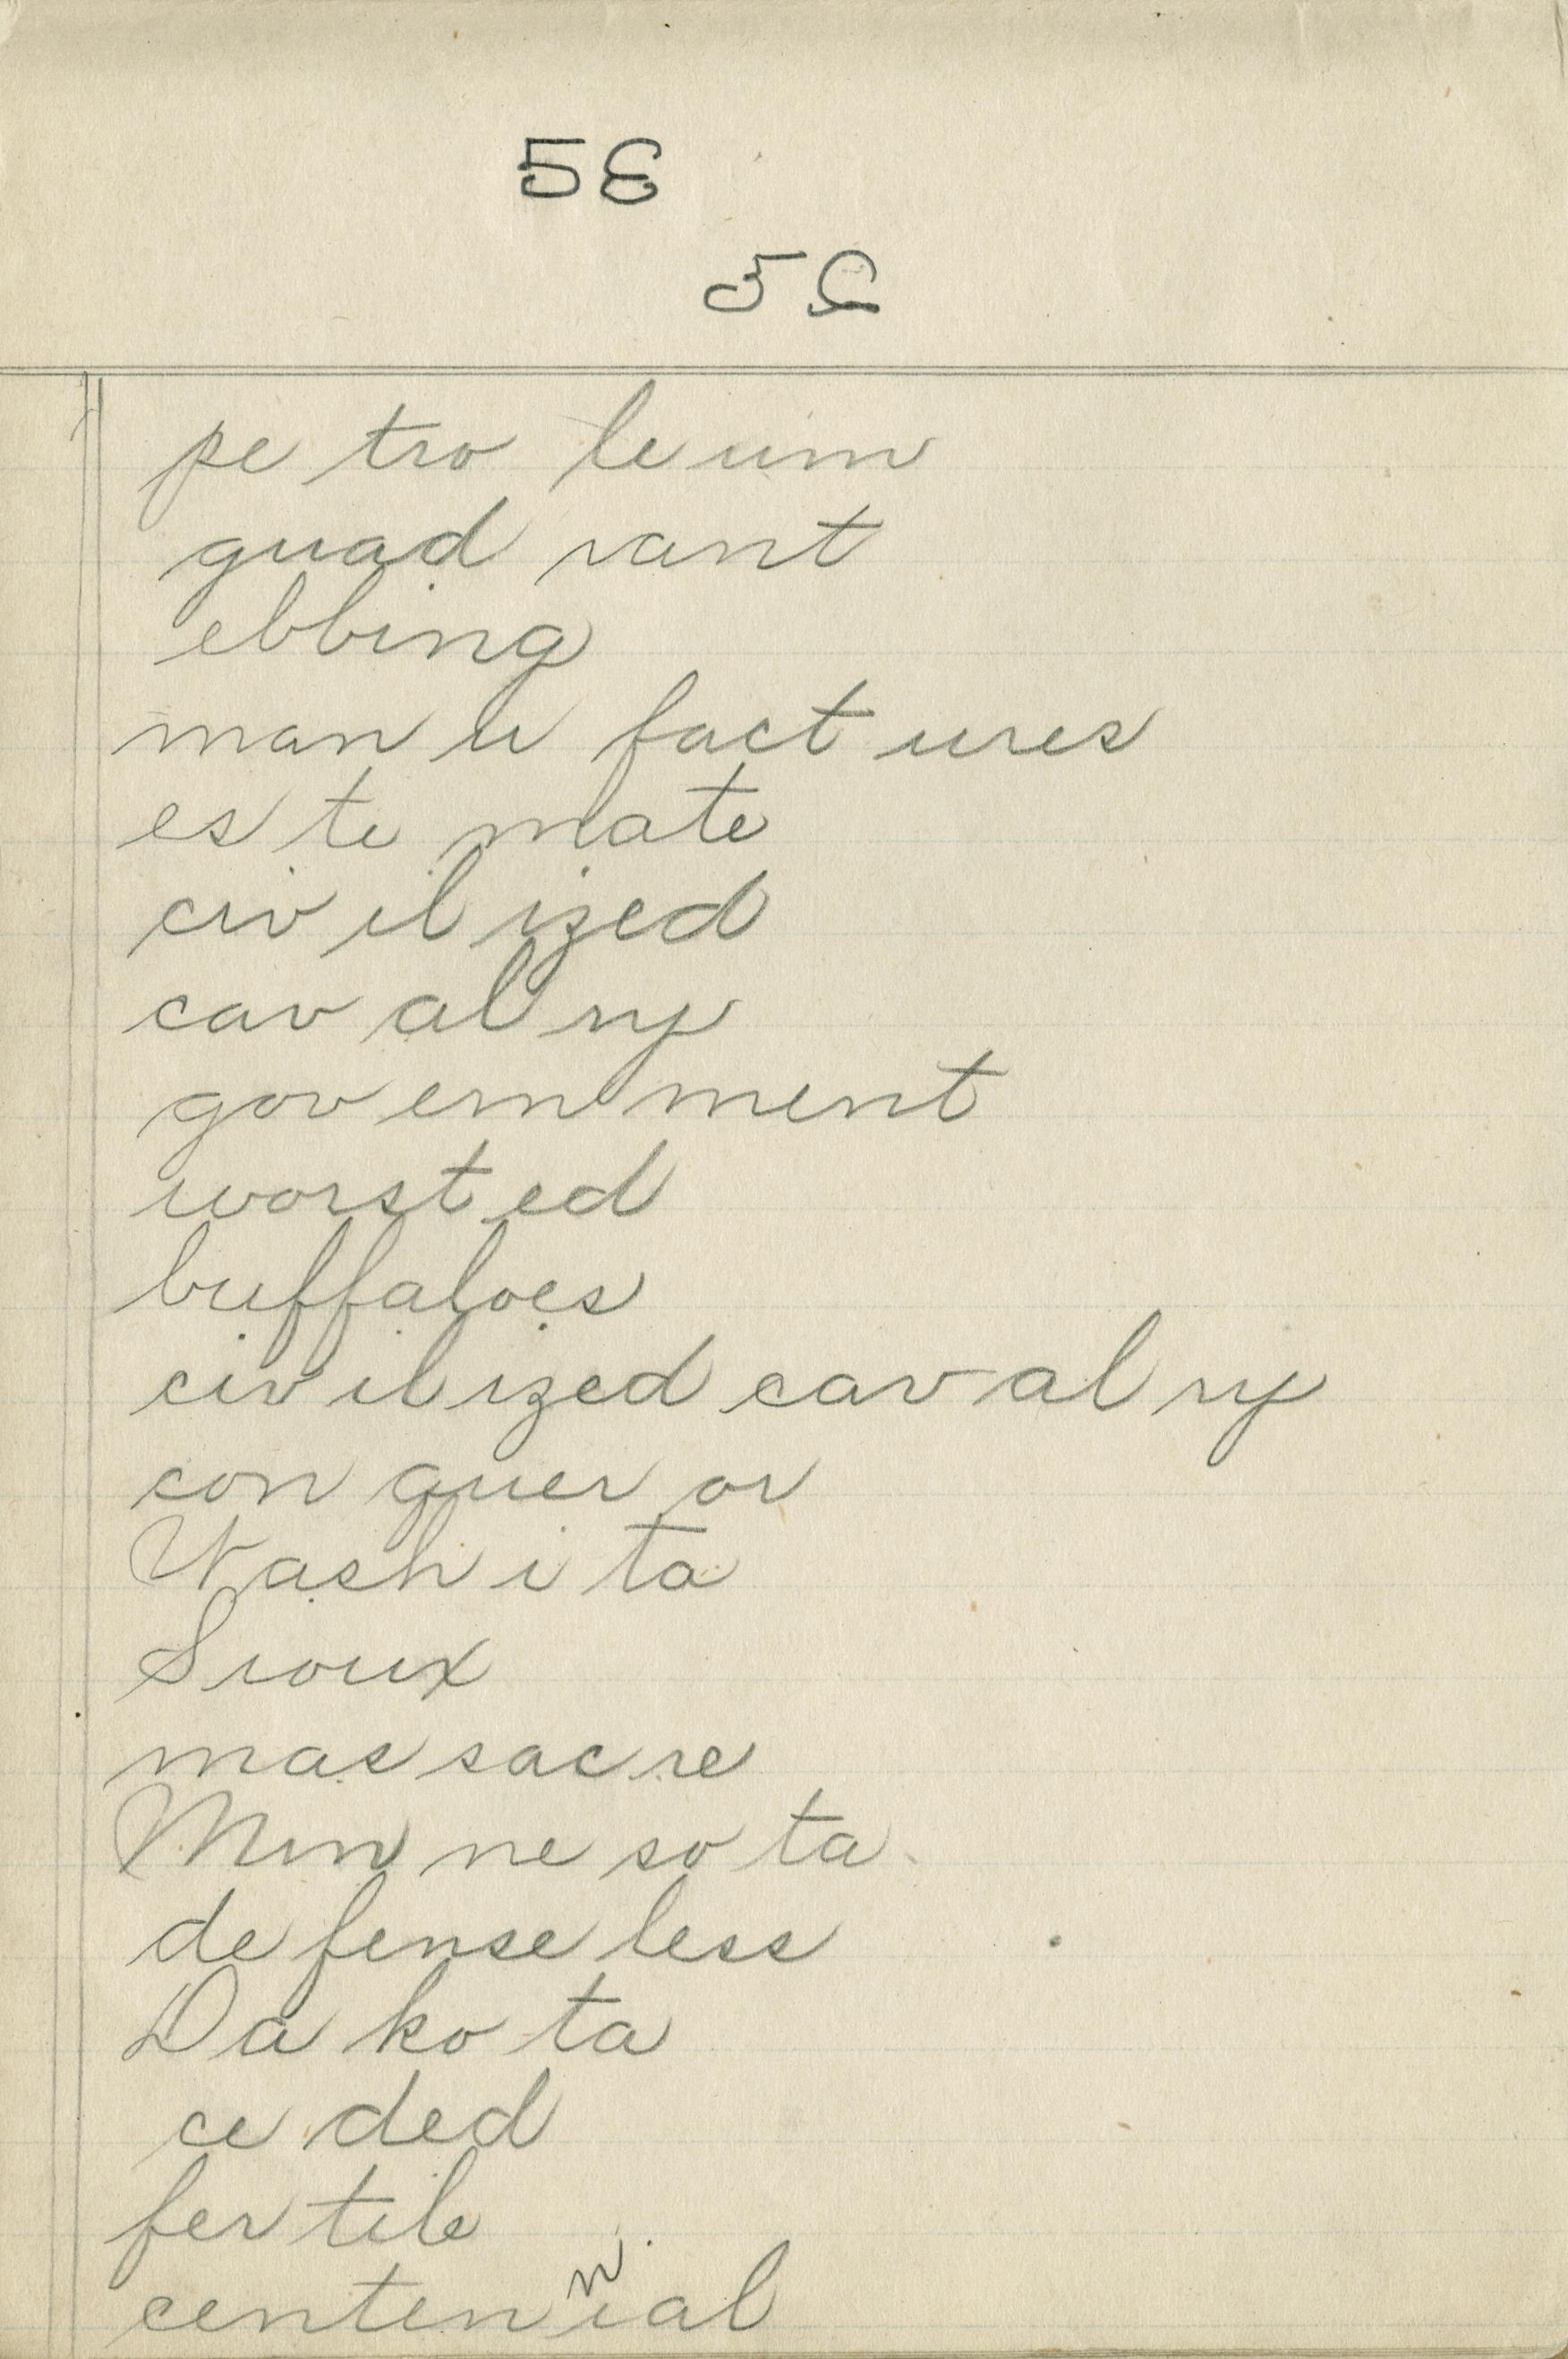 53
52
pe tro le um
quad rant
ebbing
man u fact ures
es ti mate
civ il ized
cav al ry
gov ern ment
worst ed
buffaloes
civ il ized cav al ry
con quer or
Wash i ta
Sioux
mas sac re
Min ne so ta
de fense less
Da ko ta
ce ded
fer tile
centennial